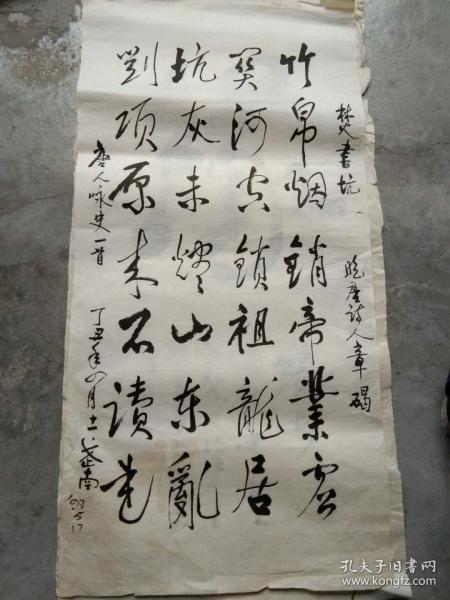 焚書坑 晚唐詩人章碣
竹帛烟銷帝業虛
関河空鎖祖龍居
坑灰未燼山东亂
劉項原来不讀书
唐人咏史一首 丁丑年四月十一 南
97.5.17
孔夫子旧书网
www.kongfz.com